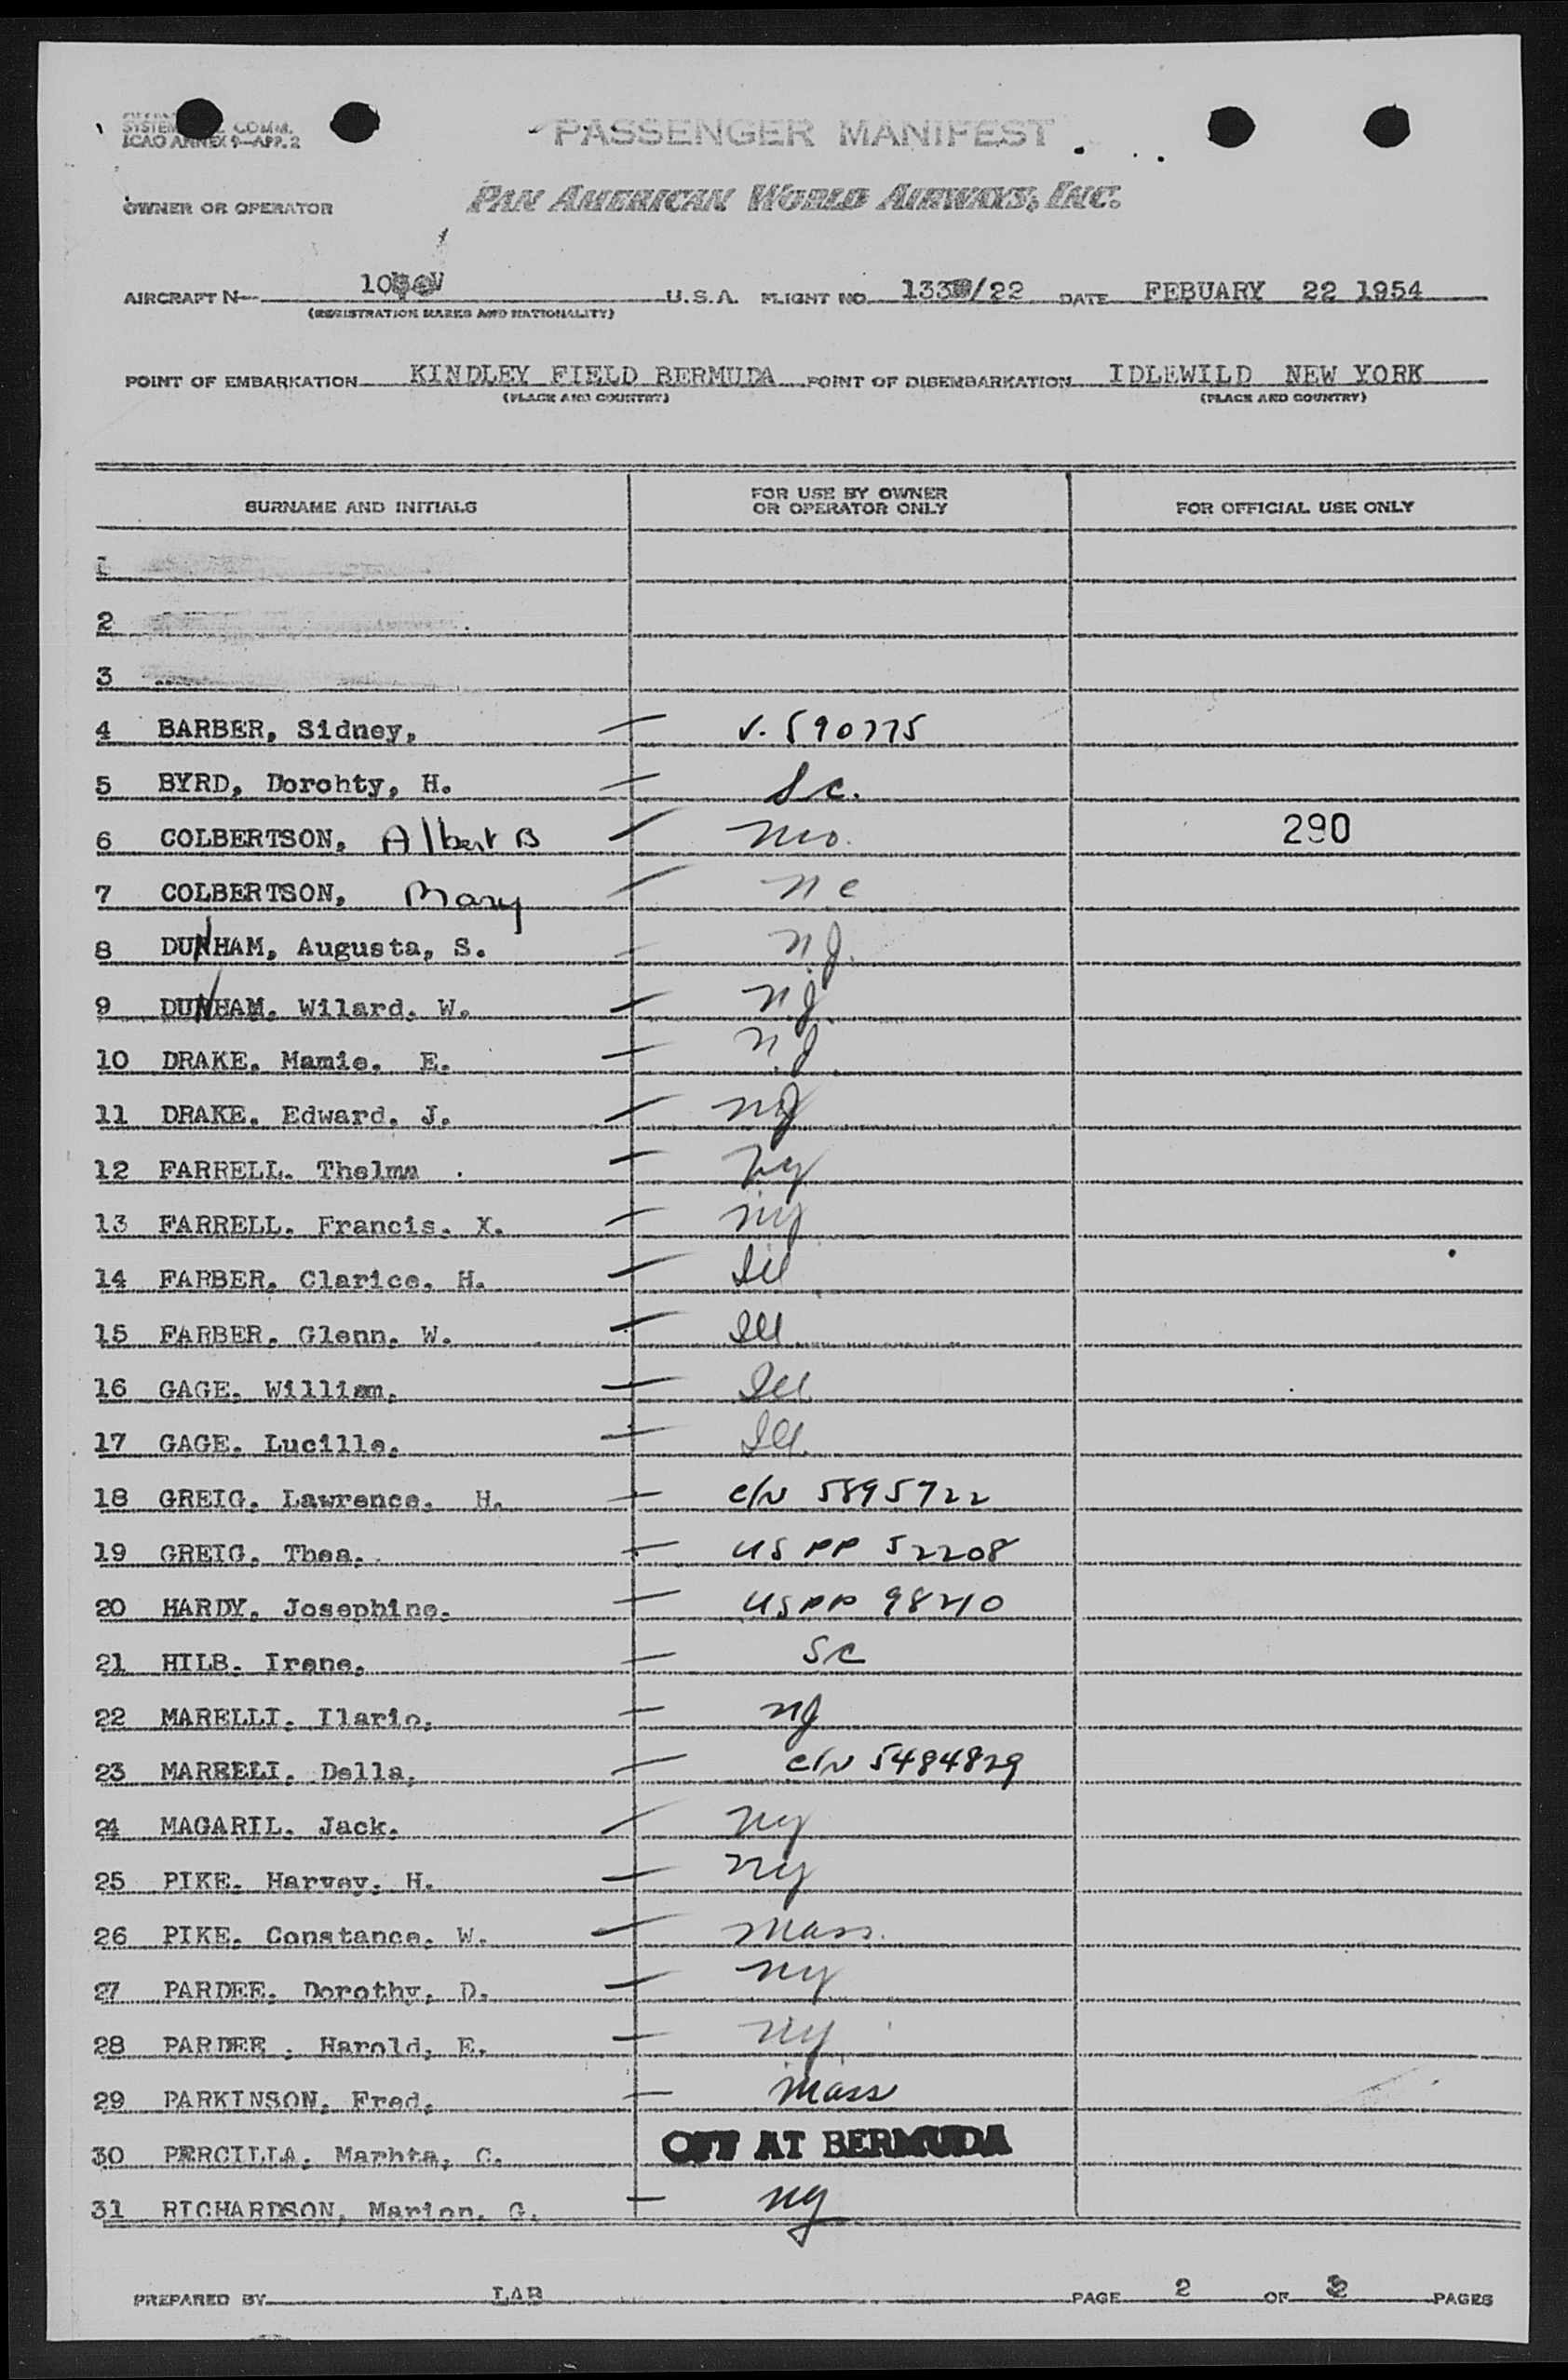 SYSTEM COMM.
ICAO ANNEX 9—APP. 2
PASSENGER MANIFEST
OWNER OR OPERATOR PAN AMERICAN WORLD AIRWAYS, INC.
AIRCRAFT N— U.S.A. FLIGHT NO. /22 DATE FEBUARY 22 1954
(REGISTRATION MARKS AND NATIONALITY)
POINT OF EMBARKATION KINDLEY FIELD BERMUDA POINT OF DISEMBARKATION IDLEWILD NEW YORK
(PLACE AND COUNTRY) (PLACE AND COUNTRY)
SURNAME AND INITIALS FOR USE BY OWNER OR OPERATOR ONLY FOR OFFICIAL USE ONLY
1
2
3
4 BARBER, Sidney, — V. 590775
5 BYRD, Dorohty, H. — Sc.
6 COLBERTSON, Albert B — Mo. 290
7 COLBERTSON, Mary — NC
8 DUNHAM, Augusta, S. — N.J.
9 DUNHAM, Wilard, W. — N.J.
10 DRAKE, Mamie, E. — N.J.
11 DRAKE, Edward, J. — NJ
12 FARRELL, Thelma . — NY
13 FARRELL, Francis, X. — NY
14 FARBER, Clarice, H. — Ill
15 FARBER, Glenn, W. — Ill
16 GAGE, William, — Ill
17 GAGE, Lucille, — Ill.
18 GREIG, Lawrence, H. — C/N 5895722
19 GREIG, Thea, — US PP 52208
20 HARDY, Josephine, — US PP 98210
21 HILB, Irene, — SC
22 MARELLI, Ilario, — NJ
23 MARRELI, Della, — C/N 5484829
24 MAGARIL, Jack, — NY
25 PIKE, Harvey, H. — NY
26 PIKE, Constance, W. — Mass.
27 PARDEE, Dorothy, D. — NY
28 PARDEE , Harold, E. — NY
29 PARKINSON, Fred, — Mass
30 PERCILLA, Marhta, C. OFF AT BERMUDA
31 RICHARDSON, Marion, G. — NY
PREPARED BY LAB PAGE 2 OF PAGES